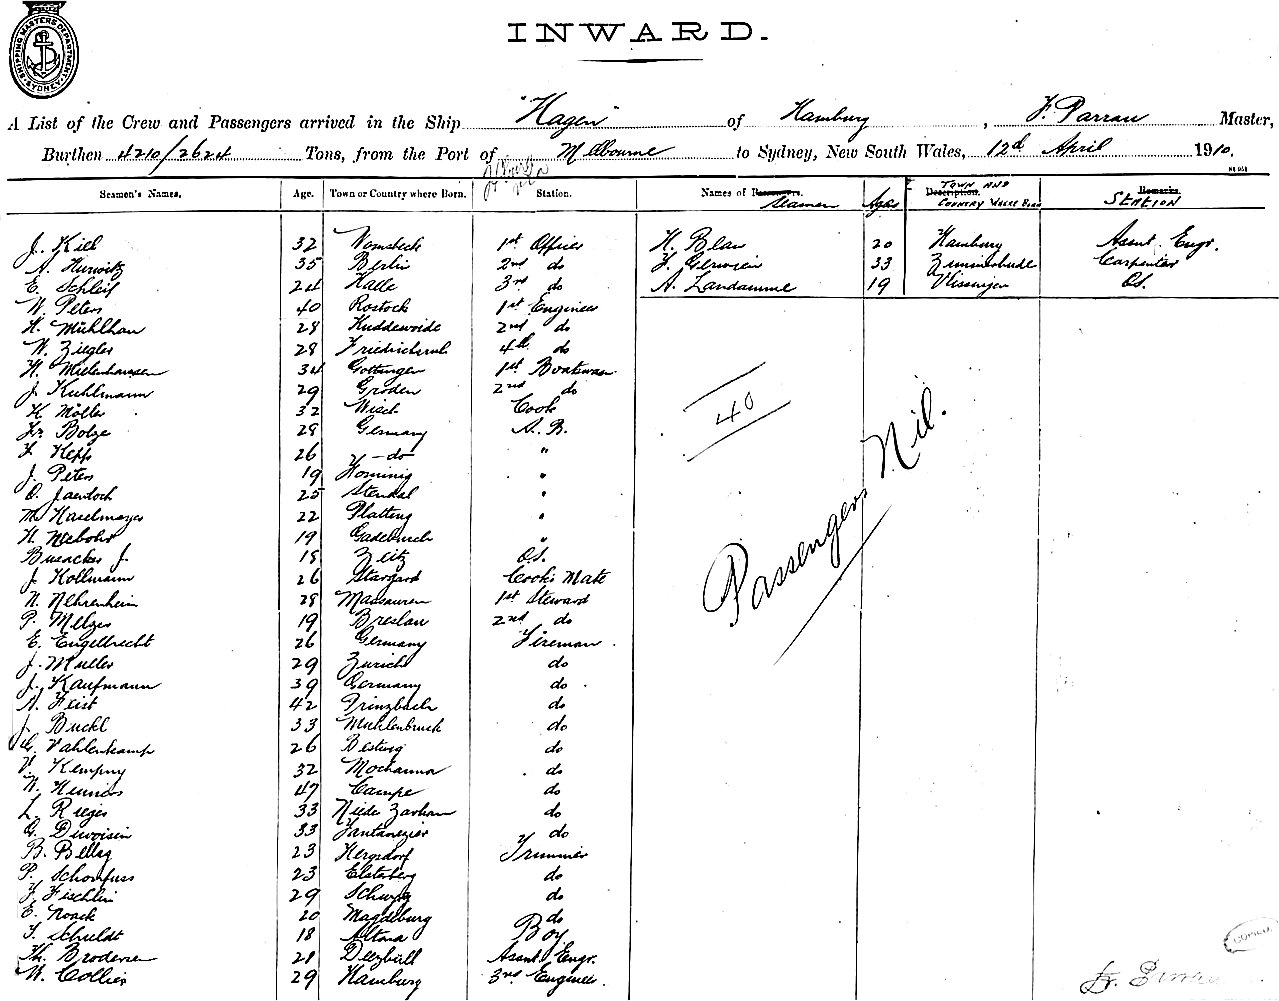 SHIPPING MASTERS DEPARTMENT SYDNEY
INWARD.
A List of the Crew and Passengers arrived in the Ship "Hagen" of Hamburg, Master,
Burthen 4210/2624 Tons, from the Port of Melbourne to Sydney, New South Wales, 12th April 1910.
Seamen's Names. Age. Town or Country where Born. Station. Names of Passengers. Seamen Ages Description. Town and Country where Born Remarks. Station
J. Kiel 32 1st Officer H. Blau 20 Hamburg Asnt. Engr.
A. Hurwitz 35 Berlin 2nd do 33 Carpenter
E. Schleif 24 Halle 3rd do A. Landamme 19 Vlissingen O.S.
W. Peters 40 Rostock 1st Engineer
H. Mühlhan 28 Kuddewoide 2nd do
W. Ziegler 28 Friedrichsruh 4th do
H. Mielenhausen 34 Gottingen 1st Boatswan
J. Kuhlmann 29 Groden 2nd do
K. Möller 32 Wisch Cook
Fr. Bolze 28 Germany A.B.
F. Kepp 26 - do "
J. Peters 19 "
O. 25 Stendal "
M. Haselmayer 22 Platting "
H. Niebohr 19 Gadebusch "
Busacker J. 18 Zeitz O.S.
J. Hollmann 26 Stargard Cook's Mate
N. Nehrenheim 28 Massauren 1st Steward
P. Melzer 19 Breslau 2nd do
E. Engelbrecht 26 Germany Fireman
J. Muller 29 Zurich do
J. Kaufmann 39 Germany do
A. Feist 42 Prinzbach do
J. Buckl 33 Muhlenbruck do
G. Vahlenkamp 26 Bestwig do
V. Kempny 32 Mochanna do
W. Hinrichs 47 Campe do
L. Rieger 33 do
G. Dwoisin 33 do
B. Bellag 23 Hergsdorf Trimmer
P. Schonfuss 23 Elsterberg do
F. Fischlin 29 Schwyz do
E. Noack 20 Magdeburg do
F. Schuldt 18 Altona Boy
Th. Brodersen 21 Deezbüll Asnt. Engr.
W. Collier 29 Hamburg 3rd Engineer.
40
Passengers Nil.